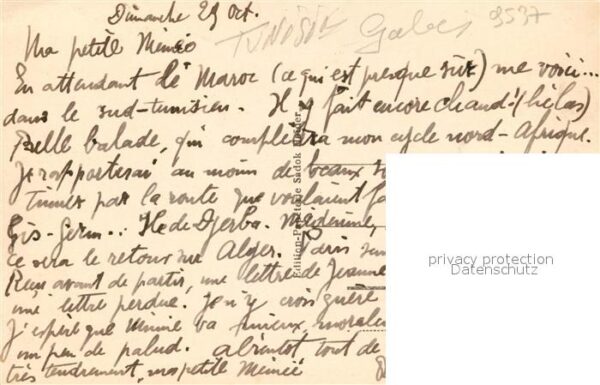 Dimanche 29 Oct.
TUNISIE Gabès 9537
Ma petite Mimie
En attendant le Maroc (ce qui est presque sûr) me voici...
dans le sud-tunisien. Il y fait encore chaud! (hélas)
Belle balade, qui complètera mon cycle nord-Afrique.
Je rapporterai au moins de beaux
par la route que voulaient
Ile de Djerba. Médenine,
ce sera le retour sur Alger.
Reçu avant de partir, une lettre de Jeanne
une lettre perdue. Je n'y crois guère
J'espère que Mimie va mieux,
un peu de palud. à bientôt tout de
très tendrement, ma petite Mimie
Edition-Papeterie Sadok
privacy protection
Datenschutz